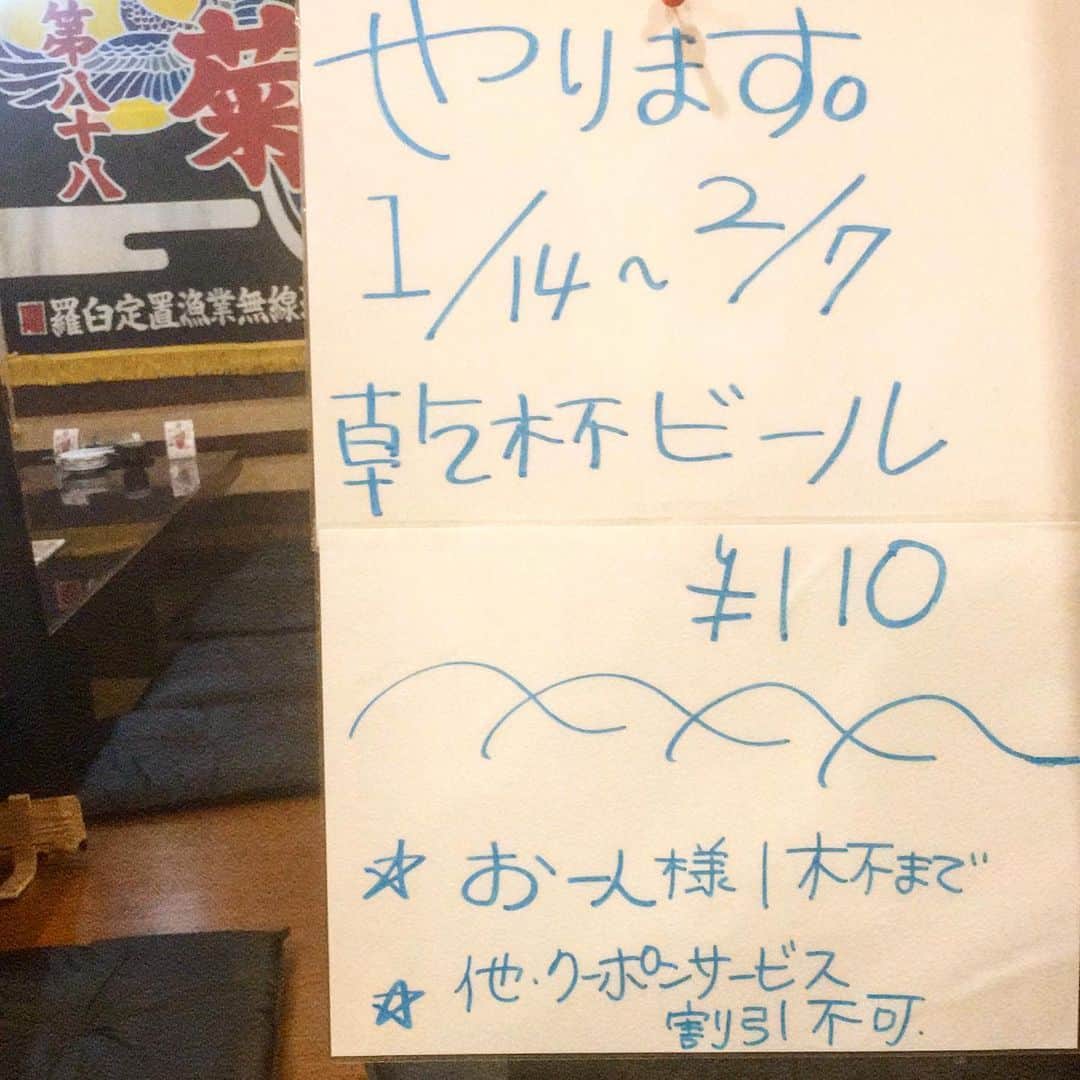 やります。
1/14～2/7
乾杯ビール
¥110
☆お一人様1杯まで
☆他・クーポンサービス
割引不可.
第八十八
菊
羅臼定置漁業無線